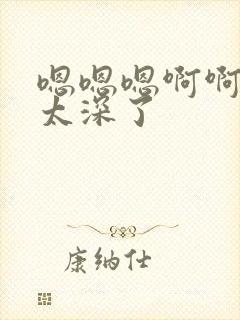 嗯嗯嗯啊啊
太深了
康纳仕